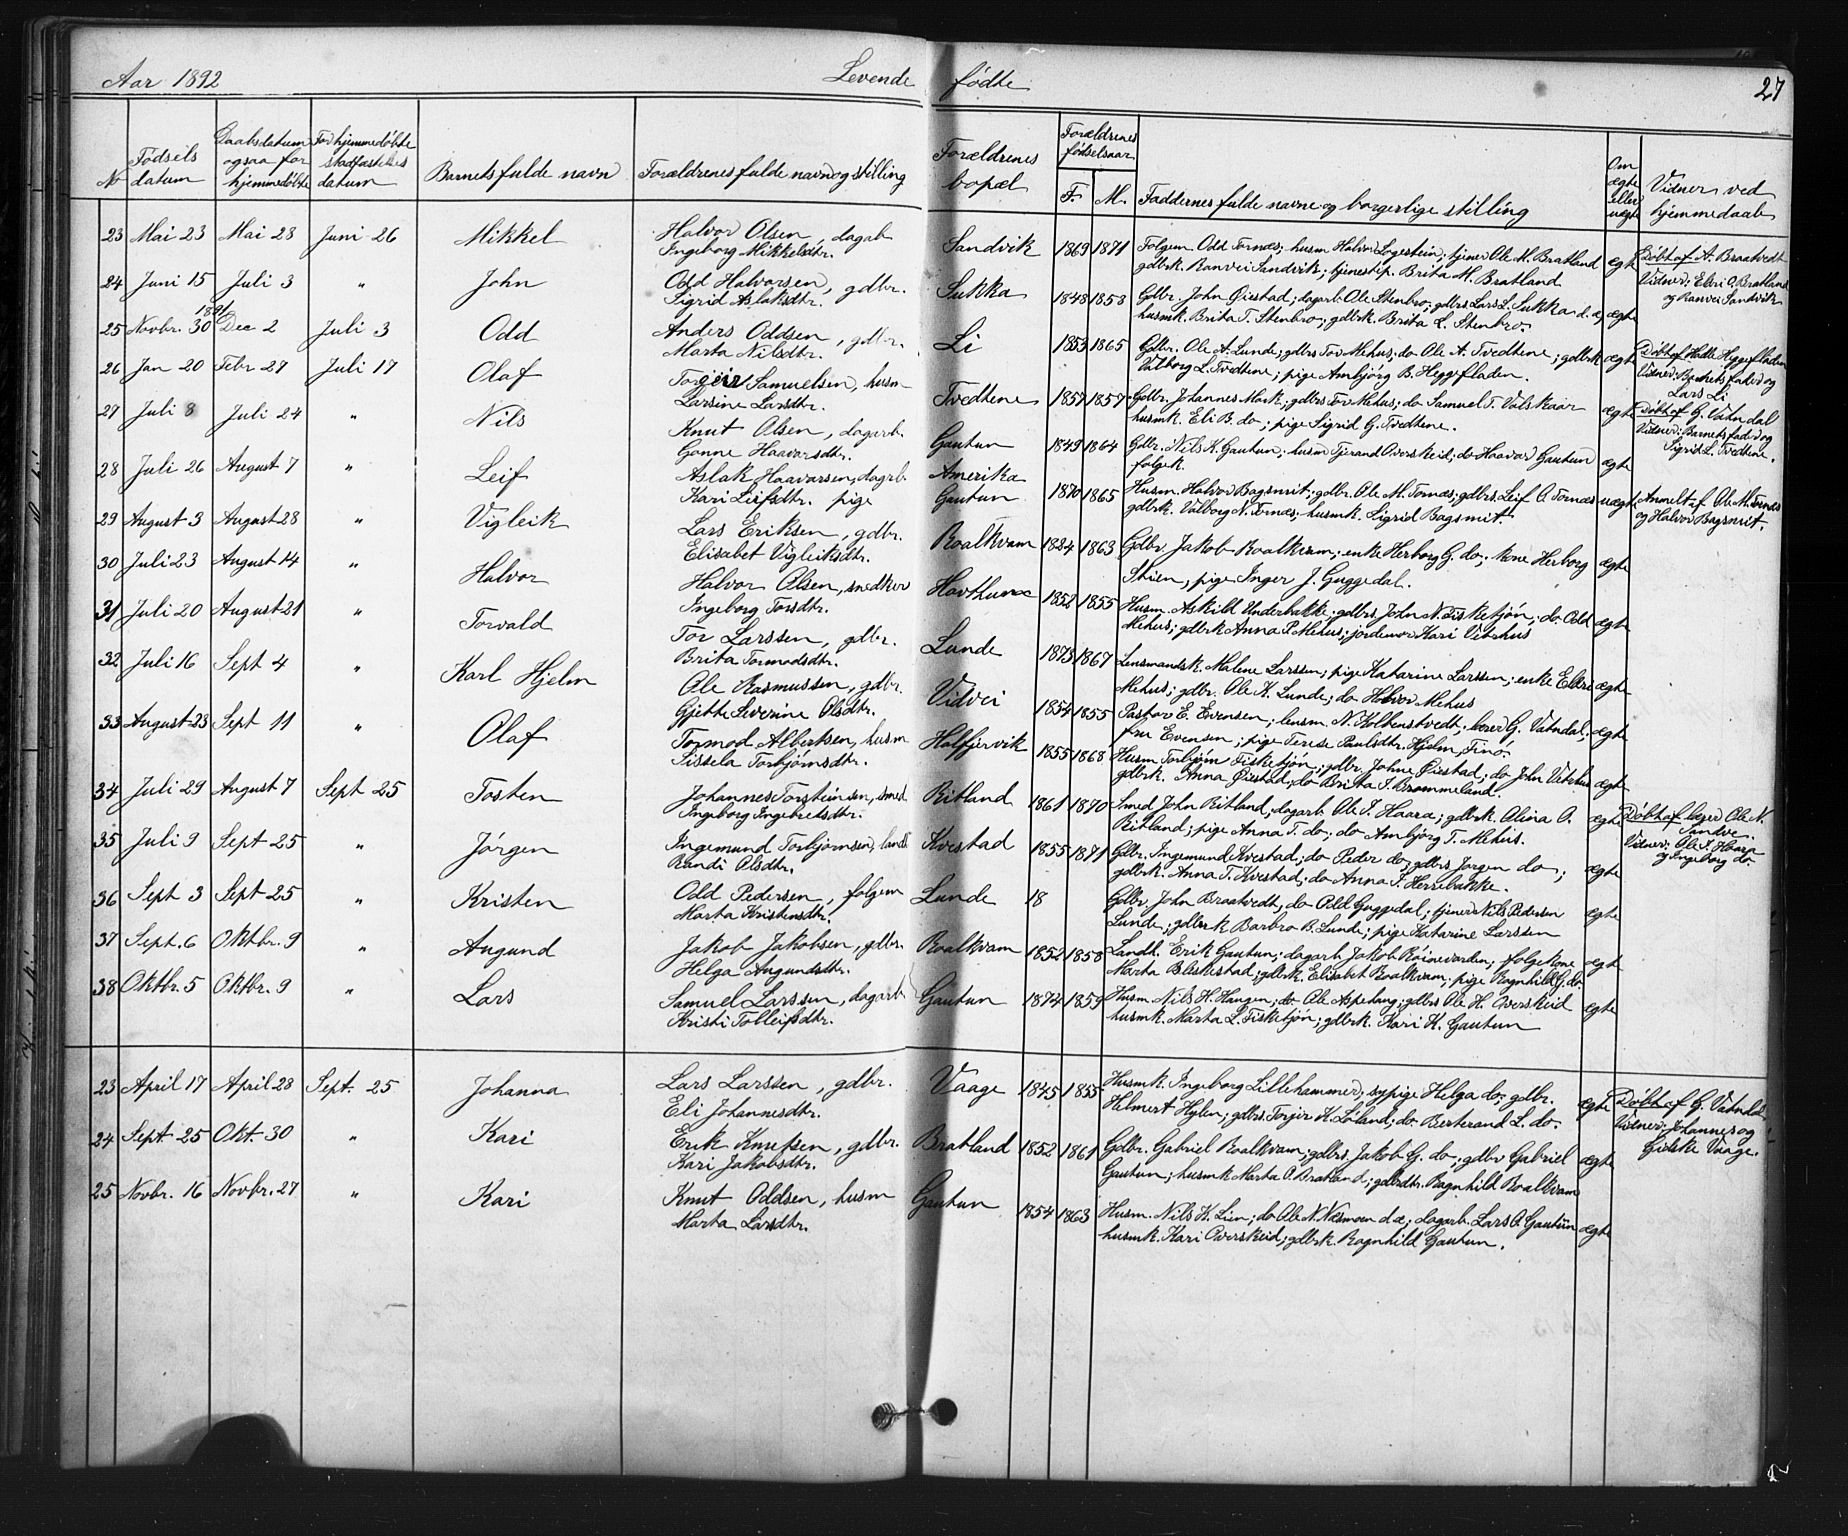 Aar 1892 Levende fødte 27
No Fødsels datum Daabsdatum ogsaa for hjemmedøbte For hjemmedøbte stadfæstelses datum Barnets fulde navn Forældrenes fulde navn og stilling Forældrenes bopæl Forældrenes fødselsaar F. M. Faddernes fulde navne og borgerlige stilling Om ægte eller uægte Vidner ved hjemmedaab
23 Mai 23 Mai 28 Juni 26 Mikkel Halvor Olsen, dagarb. Sandvik 1869 1871 Folgem. Odd Tornæs; husm. Halvor Løgestein; tjener Ole M. Bratland ægte Døbt af A. Braatvedt
Ingeborg Mikkelsdtr. gdbrk. Ranvei Sandvik; tjenestep. Brita M. Bratland Vidner: Eldri O. Bratland
og Ranvei Sandvik
24 Juni 15 Juli 3 " John Odd Halvorsen, gdbr. Sukka 1848 1853 Gdbr. John Øiestad; dagarb. Ole Stenbro; gdbrs. Lars L. Sukka d. æ ægte
Sigrid Aslaksdtr. husmk. Brita T. Stenbro; gdbrk. Brita L. Stenbro.
1891
25 Novbr. 30 Dec 2 Juli 3 Odd Anders Oddsen, gdbr. Li 1853 1865 Gdbr. Ole A. Lunde; gdbrs Tov Mehus; do Ole A. Tvedtene; gdbrk ægte Døbt af Halle Heggefladen
Marta Nilsdtr. Valborg L. Tvedtene; pige Ambjørg B. Heggefladen. Vidner: Barnets fader og
Lars Li
26 Jan 20 Febr 27 Juli 17 Olaf Torgeir Samuelsen, husm Tvedtene 1857 1857 Gdbr. Johannes Mork; gdbrs Tov Mehus; do Samuel T. Valskaar ægte Døbt af G. Vatndal
Larsine Larsdtr. husmk. Eli B. do; pige Sigrid G. Tvedtene. Vidner: Barnets fader og
Sigrid L. Tvedtene.
27 Juli 8 Juli 24 " Nils Knut Olsen, dagarb. Gautun 1849 1864 Gdbr. Nils K. Gautun; husm Tjerand Overskeid; do Haavar Gautun ægte
Gonne Haavarsdtr. folgek.
28 Juli 26 August 7 " Leif Aslak Haavarssen, dagarb. Amerika 1870 1865 Husm. Halvor Bagsmit; gdbr. Ole M. Tornæs; gdbrs. Leif O. Tornæs uægte Anmelt af Ole M. Tornæs
Kari Leifsdtr. pige Gautun gdbrk. Valborg N. Tornæs; husmk. Sigrid Bagsmit. og Halvor Bagsmit.
29 August 3 August 28 " Vigleik Lars Eriksen, gdbr. Roalkvam 1824 1863 Gdbr Jakob Roalkvam; enke Herborg G. do; kone Herborg ægte
Elisabet Vigleiksdtr. Stien, pige Inger J. Guggedal.
30 Juli 23 August 14 " Halvor Halvor Olsen, snedker 1852 1855 Husm. Askild Underbakke; gdbrs. John N. Fisketjøn; do Odd ægte
Ingeborg Torsdtr. Mehus; gdbrk Anna P. Mehus; jordemor Kari Vetrhus
31 Juli 20 August 21 " Torvald Tor Larssen, gdbr. Lunde 1873 1867 Lensmandsk. Malene Larssen; pige Katarine Larssen; enke Eldri ægte
Brita Tormodsdtr. Mehus; gdbr. Ole K. Lunde; do Halvor Mehus
32 Juli 16 Sept 4 " Karl Hjelm Ole Rasmussen, gdbr. Vidvei 1854 1855 Pastor E. Evensen; lensm. N. Kolbenstvedt; lærer G. Vatndal; ægte
Gjette Severine Olsdtr. fru Evensen; pige Terese Paulsdtr. Hjelm, Finø.
33 August 23 Sept 11 " Olaf Tormod Albertsen, husm Halfjervik 1855 1868 Husm Torbjørn Fisketjøn; gdbr. Johne Øiestad; do John Vetrhus ægte
Sissela Torbjørnsdtr. gdbrk. Anna Øiestad; do Brita I. Brommeland.
34 Juli 29 August 7 Sept 25 Tosten Johannes Torsteinsen, smed Ritland 1861 1870 Smed John Ritland; dagarb. Ole I. Haara; gdbrk. Olina O. ægte Døbt af lærer Ole N.
Ingeborg Ingebretsdtr. Ritland; pige Anna T. do; do Ambjørg T. Mehus. Sandve.
Vidner: Ole I. Haara
og Ingeborg do
35 Juli 9 Sept 25 " Jørgen Ingemund Torbjørnsen, landh Kvestad 1855 1871 Gdbr. Ingemund Kvestad; do Peder do; gdbrs Jørgen do; ægte
Randi Olsdtr. gdbrk. Anna T. Kvestad; do Anna I. Herrebakke.
36 Sept 3 Sept 25 " Kristen Odd Pedersen, folgem Lunde 18 Gdbr John Braatvedt, do Odd Guggedal; tjener Nils Pedersen ægte
Marta Kristensdtr. Lunde; gdbrk Barbro B. Lunde; pige Katarine Larssen
37 Sept. 6 Oktbr. 9 " Augund Jakob Jakobsen, gdbr. Roalkvam 1852 1858 Landh. Erik Gautun; dagarb Jakob Røinevarden; folgekone ægte
Helga Augundsdtr. Marta Bleskestad; gdbrk. Elisabet Roalkvam; pige Ragnhild G. do
38 Oktbr. 5 Oktbr. 9 " Lars Samuel Larssen, dagarb Gautun 1874 1859 Husm. Nils H. Haugen; do Ole Aspetang; gdbrs Ole H. Overskeid ægte
Kristi Tolleifsdtr. husmk. Marta L. Fisketjøn; gdbrk. Kari K. Gautun
23 April 17 April 28 Sept. 25 Johanna Lars Larssen, gdbr. Vaage 1845 1855 Husmk. Ingeborg Lillehammer; sypige Helga do; gdbr. ægte Døbt af G. Vatndal
Eli Johannesdtr. Helmert Hylen; gdbrs. Torgeir K. Løland; do Berterand L. do. Vidner: Johannes og
Gidske Vaage.
24 Sept 25 Okt. 30 " Kari Erik Knutsen, gdbr. Bratland 1852 1861 Gdbr. Gabriel Roalkvam; gdbrs. Jakob G. do; gdbr Gabriel ægte
Kari Jakobsdtr. Gautun; husmk Marta O. Bratland; gdbrdtr. Ragnhild Roalkvam
25 Novbr. 16 Novbr. 27 " Kari Knut Oddsen, husm Gautun 1854 1863 Husm. Nils K. Lien; do Ole N. Næsmoen d æ; dagarb. Lars O. Gautun ægte
Marta Larsdtr. husmk. Kari Overskeid; gdbrk. Ragnhild Gautun.